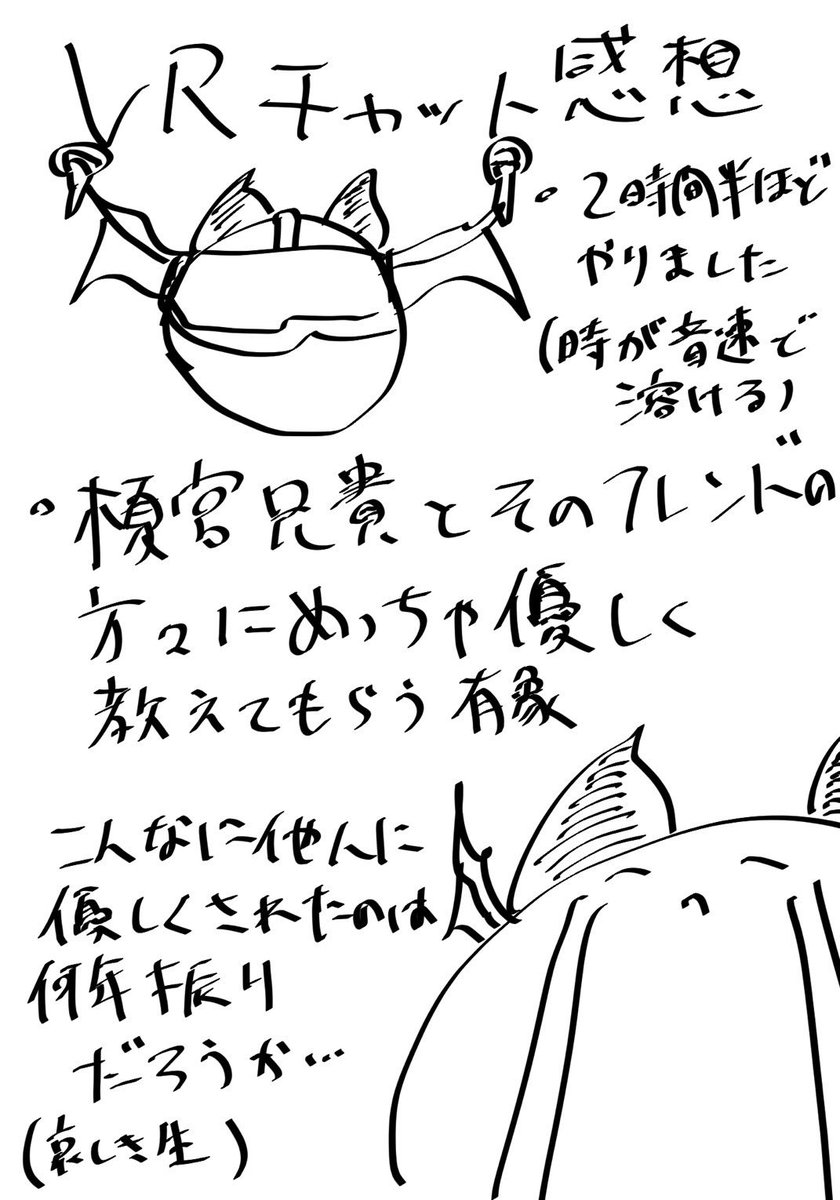 VRチャット感想
・2時間半ほど
やりました
(時が音速で
溶ける)
・榎宮兄貴とそのフレンドの
方々にめっちゃ優しく
教えてもらう有象
こんなに他人に
優しくされたのは
何年振り
だろうか…
(哀しき生)